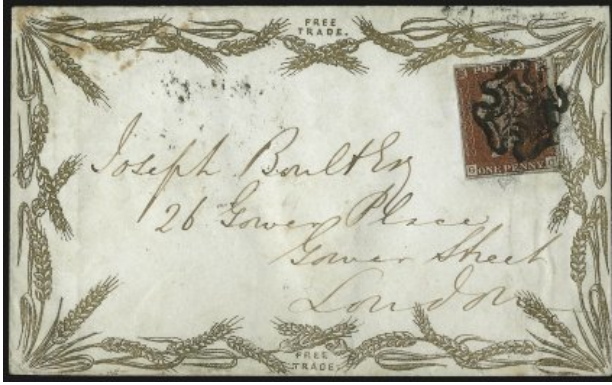 FREE
TRADE.
POSTAGE
ONE PENNY
Joseph Boult Esq
26 Gower Place
Gower Street
London
FREE
TRADE.